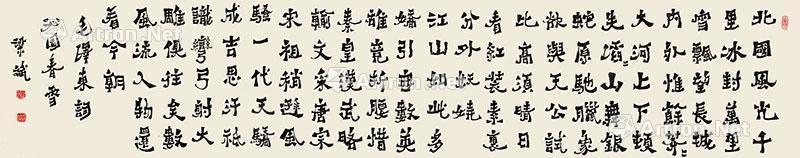 北國風光千
里冰封萬里
雪飄望長城
内外惟餘莽〻
大河上下頓
失滔〻山舞銀
蛇原馳臘象
欲與天公試
比高須晴日
看紅裝素裹
分外妖嬈
江山如此多
嬌引無數英
雄競折腰惜
秦皇漢武略
輸文采唐宗
宋祖稍遜風
騷一代天驕
成吉思汗祇
識彎弓射大
雕俱往矣數
風流人物還
看今朝
毛澤東詞
沁園春雪
梁斌